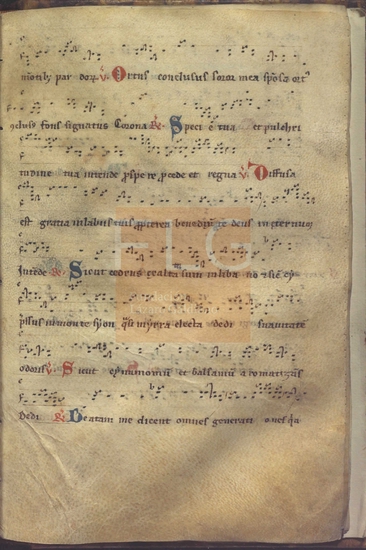 montib; pardorum. V. Ortus conclusus soror mea sponsa ort
conclusus fons signatus Corona R. Specie tua et pulchri
tudine tua intende prospere procede et regna V. Diffusa
est gratia in labiis tuis propterea benedixit te deus in eternum
Intende R. Sicut cedrus exaltata sum in libano & sicut cy
pressus in monte syon quasi myrra electa dedi suavitate
odoris V. Sicut cynamomum et balsamum aromatizans
Dedi. R. Beatam me dicent omnes generationes quia
FLG